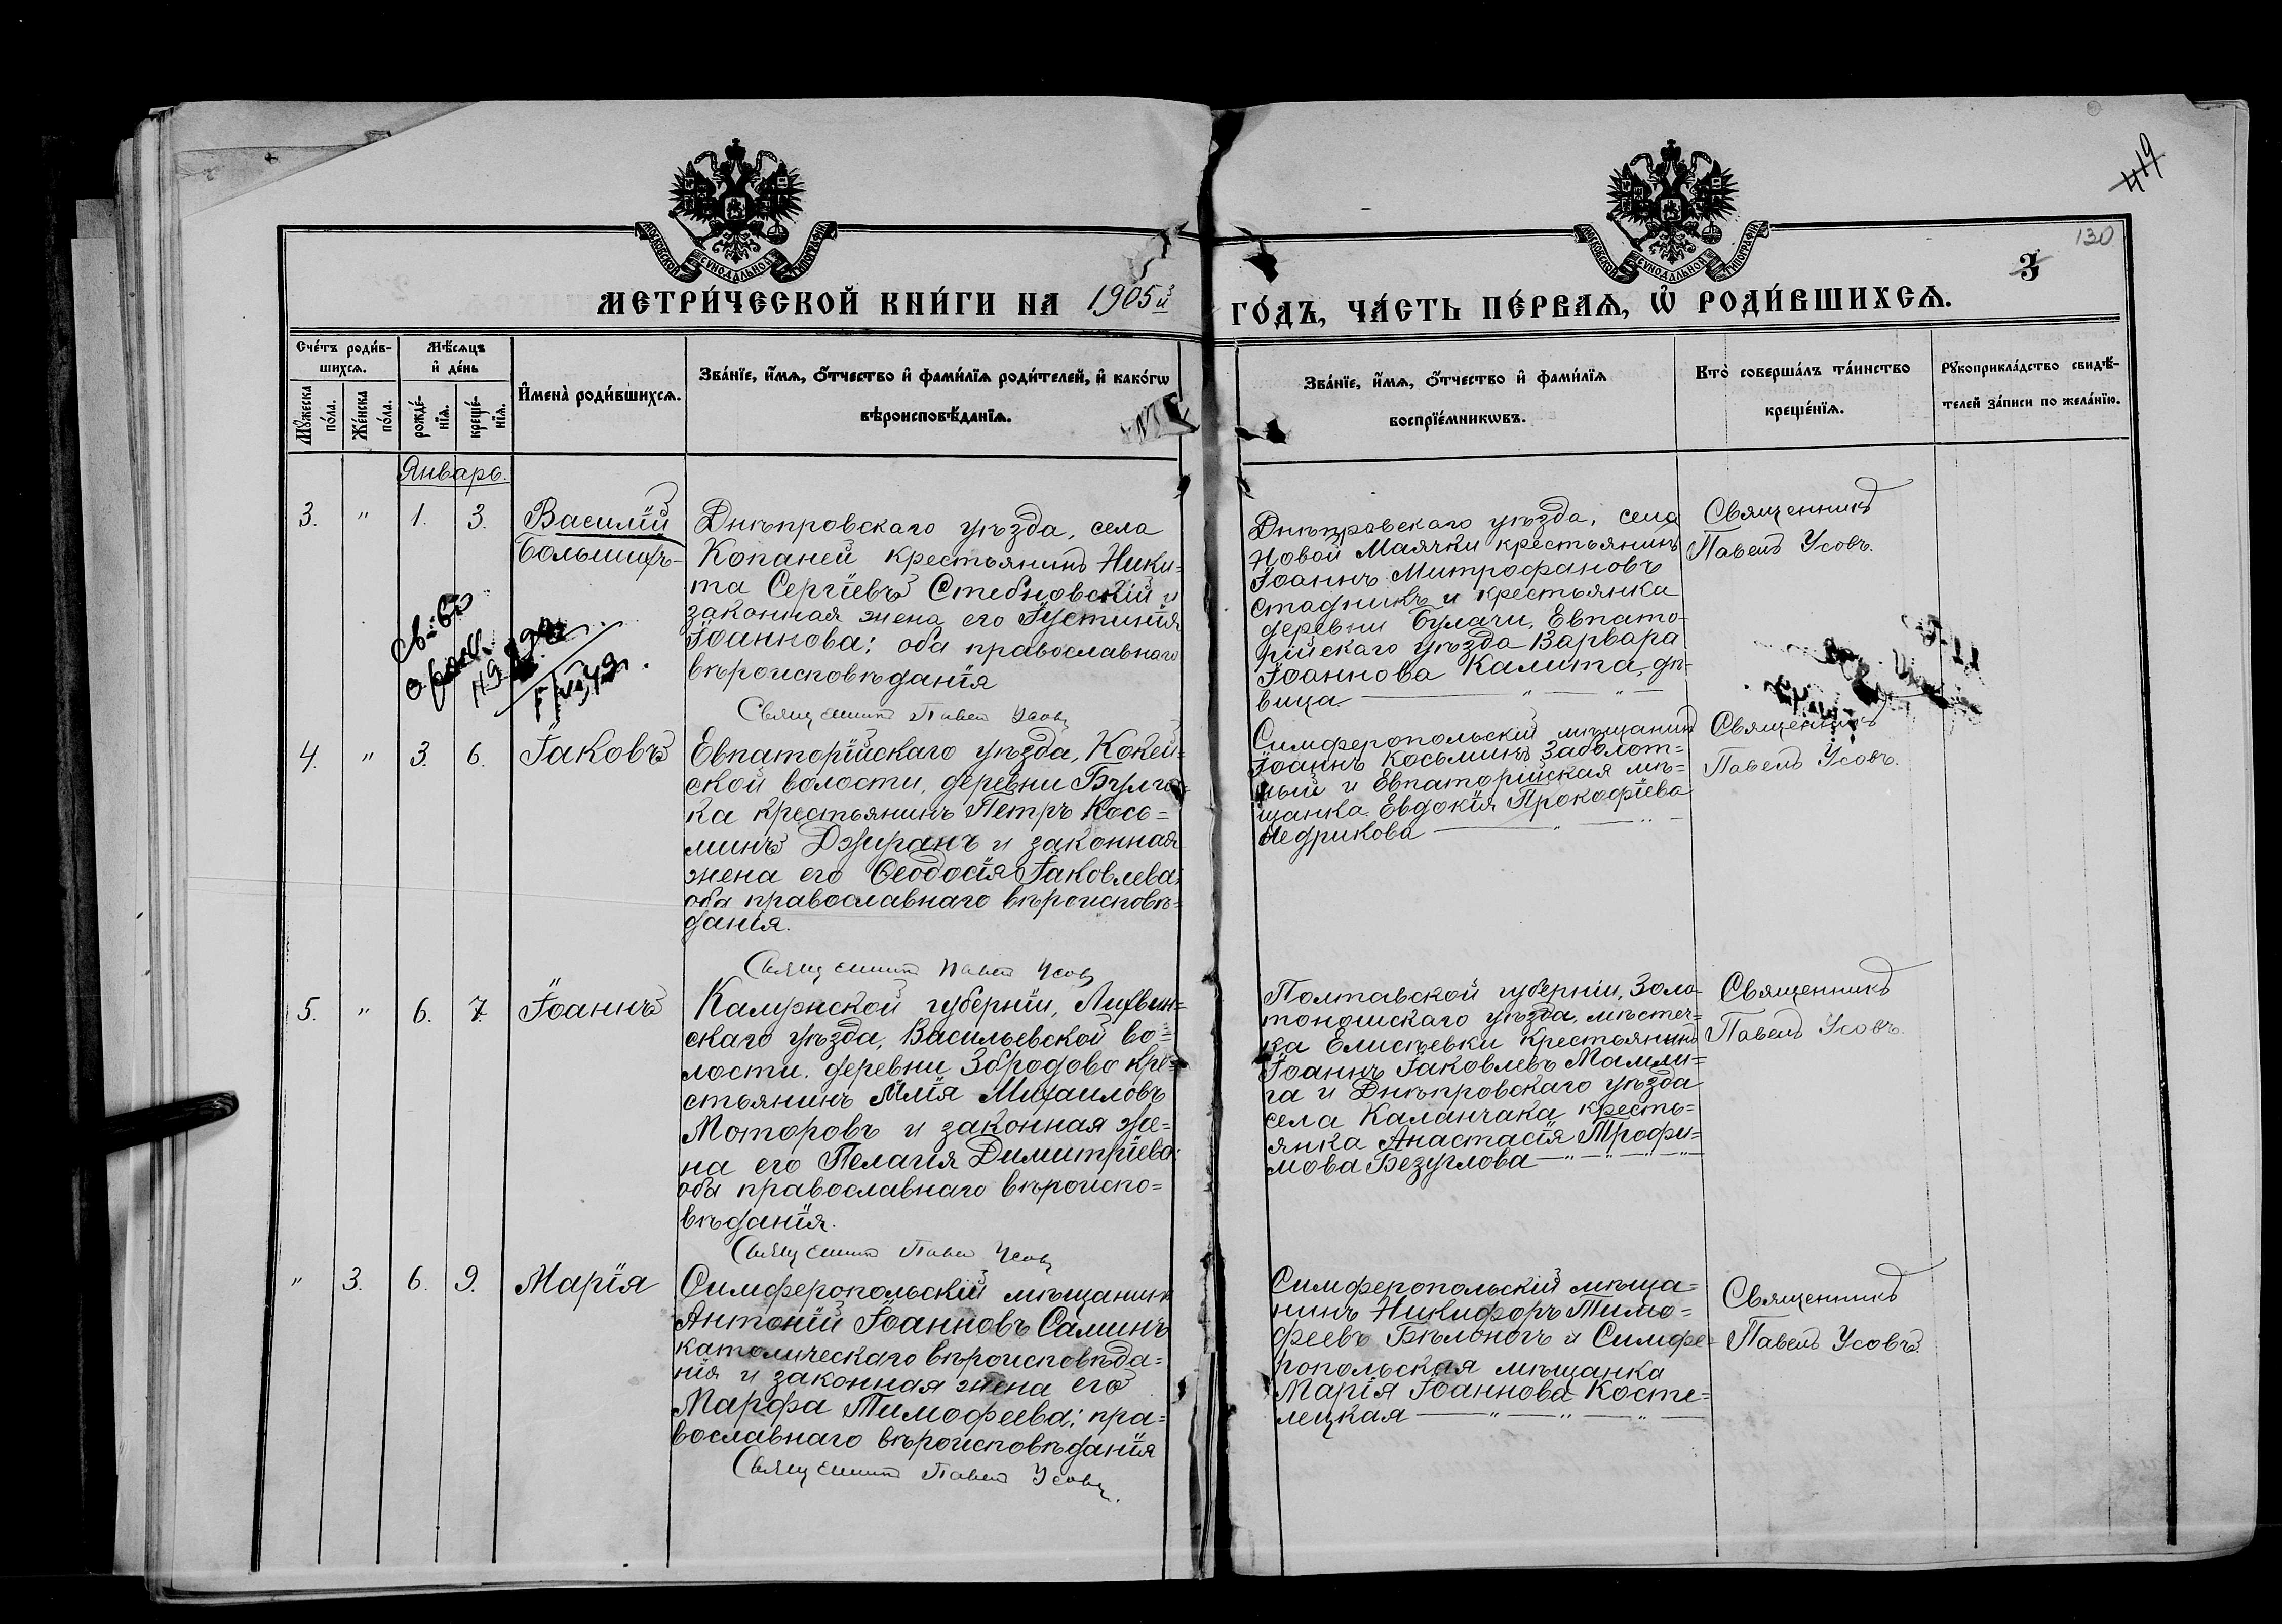 419
130
3
МОСКОВСКОЙ СѴНОДАЛЬНОЙ ТИПОГРАФІИ
МОСКОВСКОЙ СѴНОДАЛЬНОЙ ТИПОГРАФІИ
МЕТРИ́ЧЕСКОЙ КНИ́ГИ НА 1905й ГО́ДЪ, ЧА́СТЬ ПЕ́РВАѦ, Ѽ РОДИ́ВШИХСѦ.
Сче́тъ роди́в-
шихсѧ.
Мѣ́сѧцъ
и҆ де́нь
Мꙋ́жеска
по́ла.
Же́нска
по́ла.
рожде́-
нїѧ.
креще́-
нїѧ.
И҆мена̀ роди́вшихсѧ.
Зва́нїе, и҆́мѧ, ѻ҆́тчество и҆ фами́лїѧ роди́телей, и҆ како́гѡ
вѣроисповѣ́данїѧ.
Зва́нїе, и҆́мѧ, ѻ҆́тчество и҆ фами́лїѧ
воспрїе́мникѡвъ.
Кто̀ соверша́лъ та́инство
креще́нїѧ.
Рꙋкоприкла́дство свидѣ́-
телей за́писи по жела́нїю.
Январь.
3. " 1. 3. Василій
Днѣпровскаго уѣзда, села
Копаней крестьянинъ Ники-
та Сергіевъ Стебновскій и
законная жена его Іустинія
Іоаннова; оба православнаго
вѣроисповѣданія
Священникъ Павелъ Усовъ
Днѣпровскаго уѣзда, села
Новой Маячки крестьянинъ
Іоаннъ Митрофановъ
Стадникъ и крестьянка
деревни Булачи, Евпато-
рійскаго уѣзда Варвара
Іоаннова Калита, дѣ-
вица
Священникъ
Павелъ Усовъ.
4. " 3. 6. Іаковъ
Евпаторійскаго уѣзда, Кокей-
ской волости, деревни
ка крестьянинъ Петръ Кось=
минъ Джиранъ и законная
жена его Ѳеодосія Іаковлева;
оба православнаго вѣроисповѣ=
данія.
Священникъ Павелъ Усовъ
Симферопольскій мѣщанинъ
Іоаннъ Косьминъ Заболот=
ный и Евпаторійская мѣ=
щанка Евдокія Прокофіева
Недрикова
Священникъ
Павелъ Усовъ.
5. " 6. 7. Іоаннъ
Калужской губерніи, Лихвин=
скаго уѣзда, Васильевской во=
лости, деревни Збродово кре=
стьянинъ Илія Михаиловъ
Моторовъ и законная же=
на его Пелагія Димитріева;
оба православнаго вѣроиспо=
вѣданія.
Священникъ Павелъ Усовъ
Полтавской губерніи, Золо-
тоношскаго уѣзда, мѣстеч=
ка Елисѣевки крестьянинъ
Іоаннъ Іаковлевъ Мамли=
га и Днѣпровскаго уѣзда
села Каланчака кресть=
янка Анастасія Трофи=
мова Безуглова
Священникъ
Павелъ Усовъ.
" 3. 6. 9. Марія
Симферопольскій мѣщанинъ
Антоній Іоанновъ Саминъ
католическаго вѣроисповѣда=
нія и законная жена его
Марфа Тимофеева; пра=
вославнаго вѣроисповѣданія
Священникъ Павелъ Усовъ.
Симферопольскій мѣща=
нинъ Никифоръ Тимо=
феевъ Бѣлоногъ и Симфе-
ропольская мѣщанка
Марія Іоаннова Косте=
лецкая
Священникъ
Павелъ Усовъ.